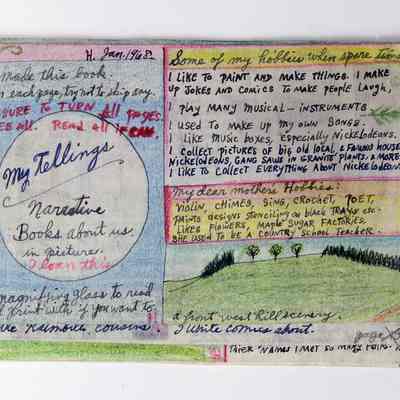 H. Jan. 1968.
make this book
n each page, try not to skip any.
SURE TO TURN all pages.
EE all. READ all if CAN.
My Tellings
Narrative
Books about us
in picture.
I loan this
magnifying glass to read
print with if you want to
cousins.
Some of my hobbies when spare time
I LIKE TO PAINT AND MAKE THINGS. I MAKE
UP JOKES AND COMICS TO MAKE PEOPLE LAUGH,
I PLAY MANY MUSICAL - INSTRUMENTS
I USED TO MAKE UP MY OWN SONGS.
I LIKE MUSIC BOXES, ESPECIALLY NICKELODEONS.
I COLLECT PICTURES OF BIG OLD LOCAL & FAMOUS HOUSES
NICKELODEONS, GANG SAWS IN GRANITE PLANTS. & MORE
I LIKE TO COLLECT EVERYTHING ABOUT NICKELODEONS
My dear mothers Hobbies:
VIOLIN, CHIMES, SING, CROCHET, POET,
PAINTS DESIGNS STENCILING ON BLACK TRAYS etc.
LIKES FLOWERS, MAPLE SUGAR FACTORIES.
SHE USED TO BE A COUNTRY SCHOOL TEACHER.
a front west hill scenery.
I write comics short.
page
THEIR NAMES I MET SO MANY